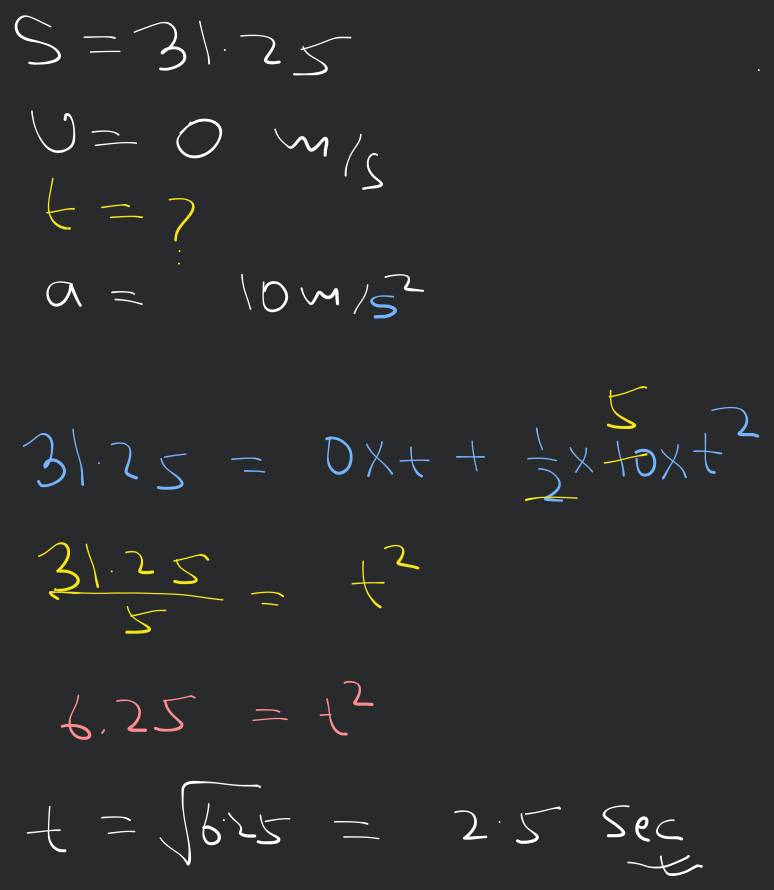 S = 31.25
U = 0 m/s
t = ?
a = 10 m/s²
31.25 = 0 × t + 1/2 × 10 × t²
5
31.25/5 = t²
6.25 = t²
t = √6.25 = 2.5 Sec